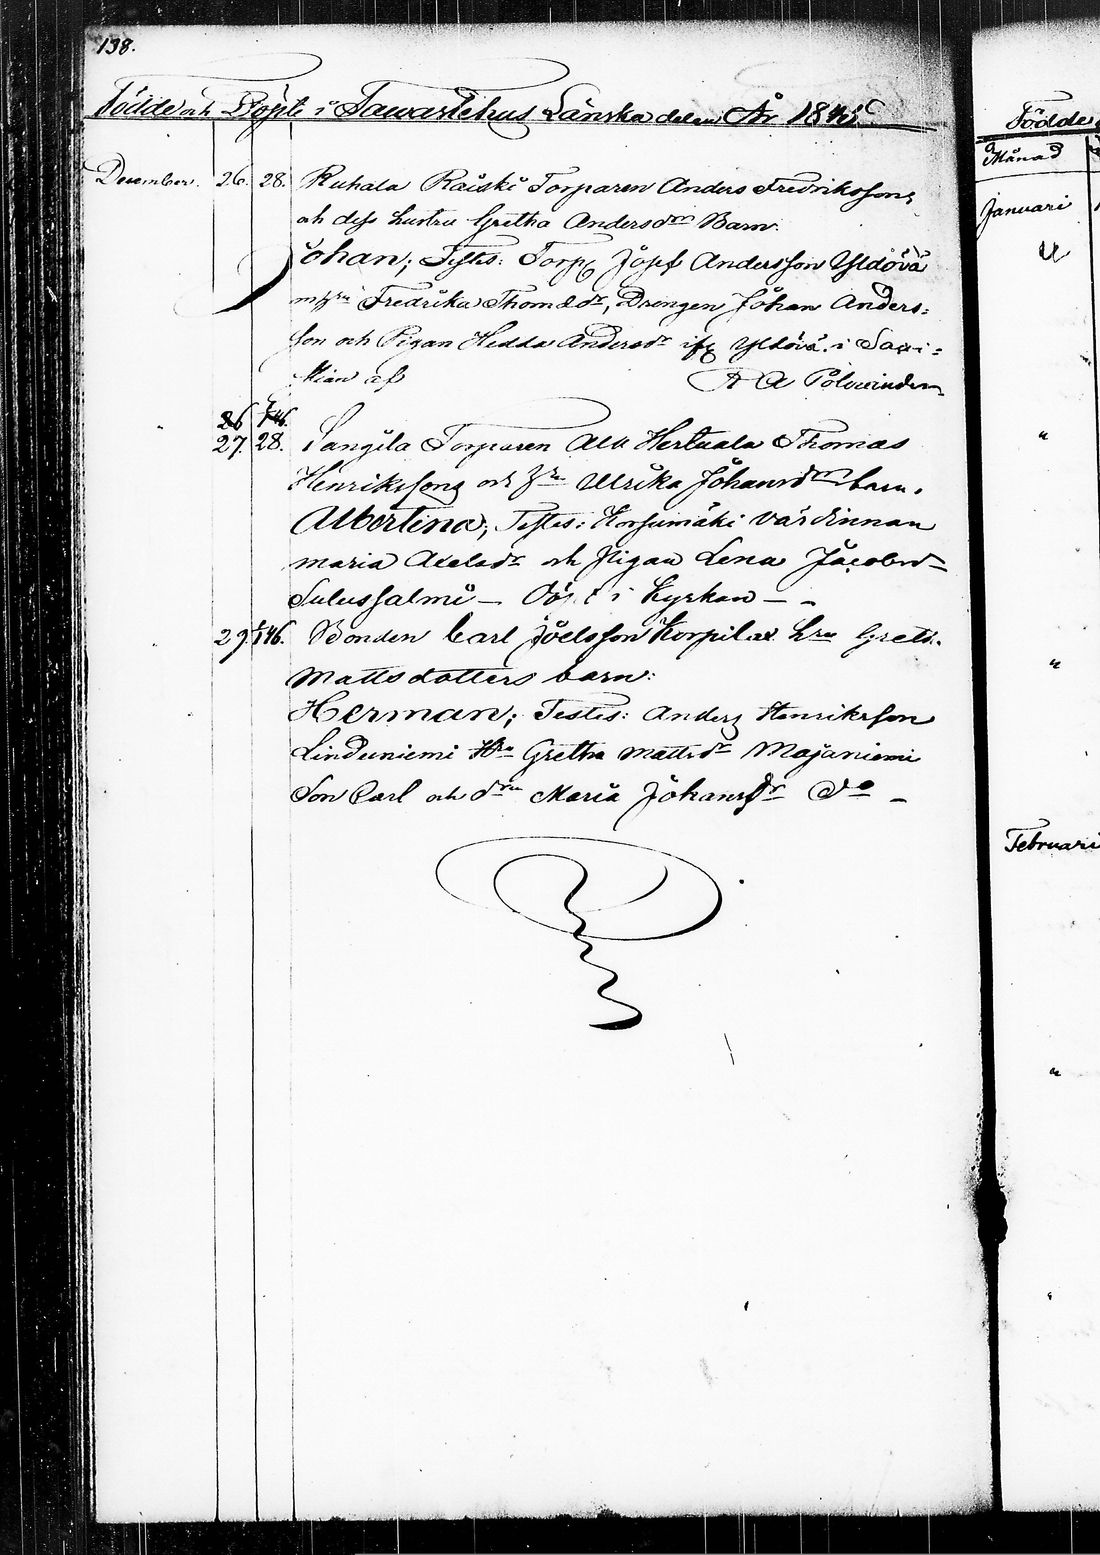 138.
Födde och Döpte i Tawastehus Länska delen År 1845
December. 26. 28. Ruhala Raiski Torparen Anders Fredrikssons
och dess hustru Gretha Andersdrs Barn.
Johan; Testes: Torp Josef Andersson Yldövä
Fredrika Thomædr, Drengen Johan Anders=
son och Pigan Hedda Andersdr Yldövä i
af A A Polwinder
26 1/146.
27. 28. Tangila Torparen Alu Hertuala Thomas
Henrikssons och hru Ulrika Johansdrs barn.
Albertina; Testes: Korsumäki Värdinnan
Maria Axelsdr och Pigan Lena Jacobsd
Sulussalmi — Döpt i Kyrkan — -
29. 1/146. Bonden Carl Joelsson Korpilax hru Greta
Mattsdotters barn:
Herman; Testes: Anders Henriksson
Linduniemi Hru Gretha Mattsdr Majaniemi
Son Carl och Maria Johansdr do —
Födde
Månad
Januari
"
"
"
Februari
"
"